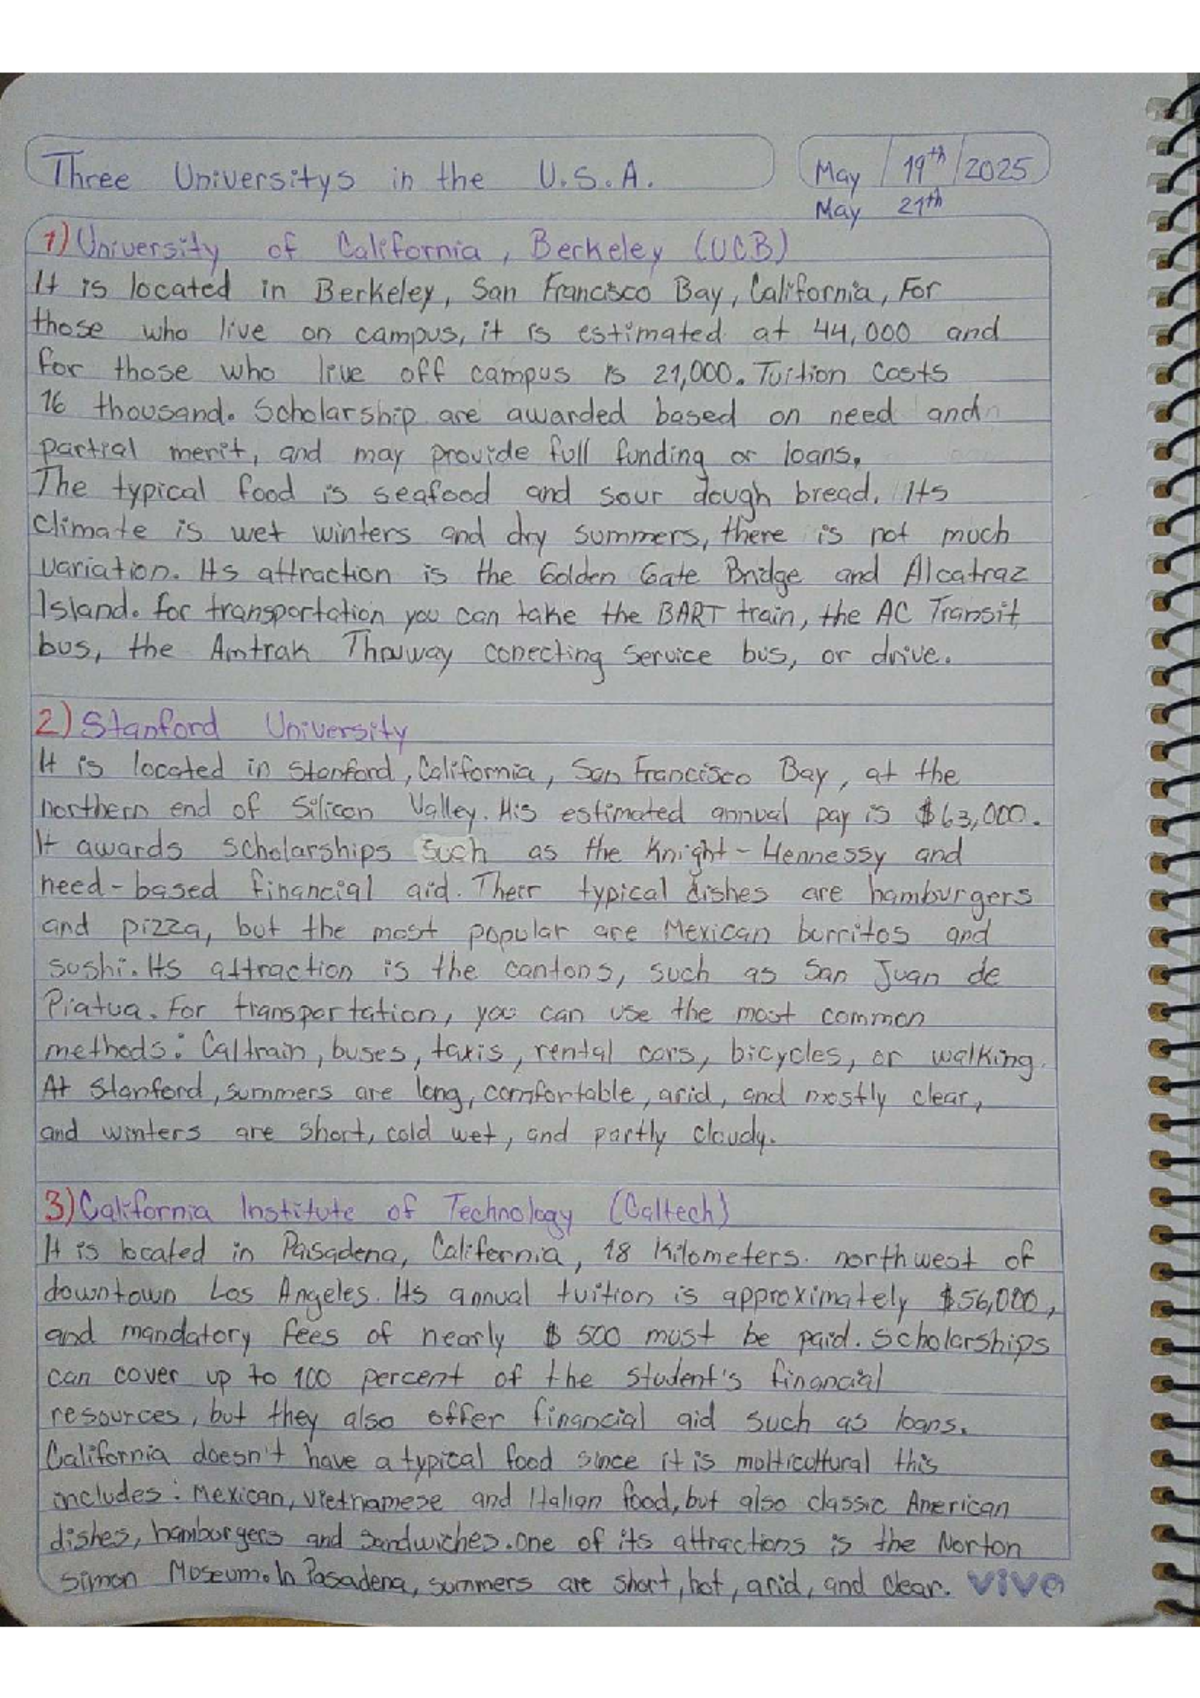 Three Universitys in the U.S.A.
May 19th 2025
May 21th
1) University of California, Berkeley (UCB)
It is located in Berkeley, San Francisco Bay, California, For
those who live on campus, it is estimated at 44,000 and
for those who live off campus is 21,000. Tuition costs
16 thousand. Scholarship are awarded based on need and
partial merit, and may provide full funding or loans.
The typical food is seafood and sour dough bread. Its
climate is wet winters and dry summers, there is not much
variation. Its attraction is the Golden Gate Bridge and Alcatraz
Island. for transportation you can take the BART train, the AC Transit
bus, the Amtrak conecting service bus, or drive.
2) Stanford University
It is located in Stanford, California, San Francisco Bay, at the
northern end of Silicon Valley. His estimated annual pay is $63,000.
It awards scholarships such as the Knight-Hennessy and
need-based financial aid. Their typical dishes are hamburgers
and pizza, but the most popular are Mexican burritos and
sushi. Its attraction is the cantons, such as San Juan de
Piatua. For transportation, you can use the most common
methods: Caltrain, buses, taxis, rental cars, bicycles, or walking.
At Stanford, summers are long, comfortable, arid, and mostly clear,
and winters are short, cold wet, and partly cloudy.
3) California Institute of Technology (Caltech)
It is located in Paisadena, California, 18 Kilometers. northwest of
downtown Los Angeles. Its annual tuition is approximately $56,000,
and mandatory fees of nearly $ 500 must be paid. Scholarships
can cover up to 100 percent of the student's financial
resources, but they also offer financial aid such as loans.
California doesn't have a typical food since it is molticultural this
includes: Mexican, vietnamese and Italian food, but also classic American
dishes, hamburgers and sandwiches. one of its attractions is the Norton
Simon Museum. In Pasadena, summers are short, hot, arid, and clear. vivo